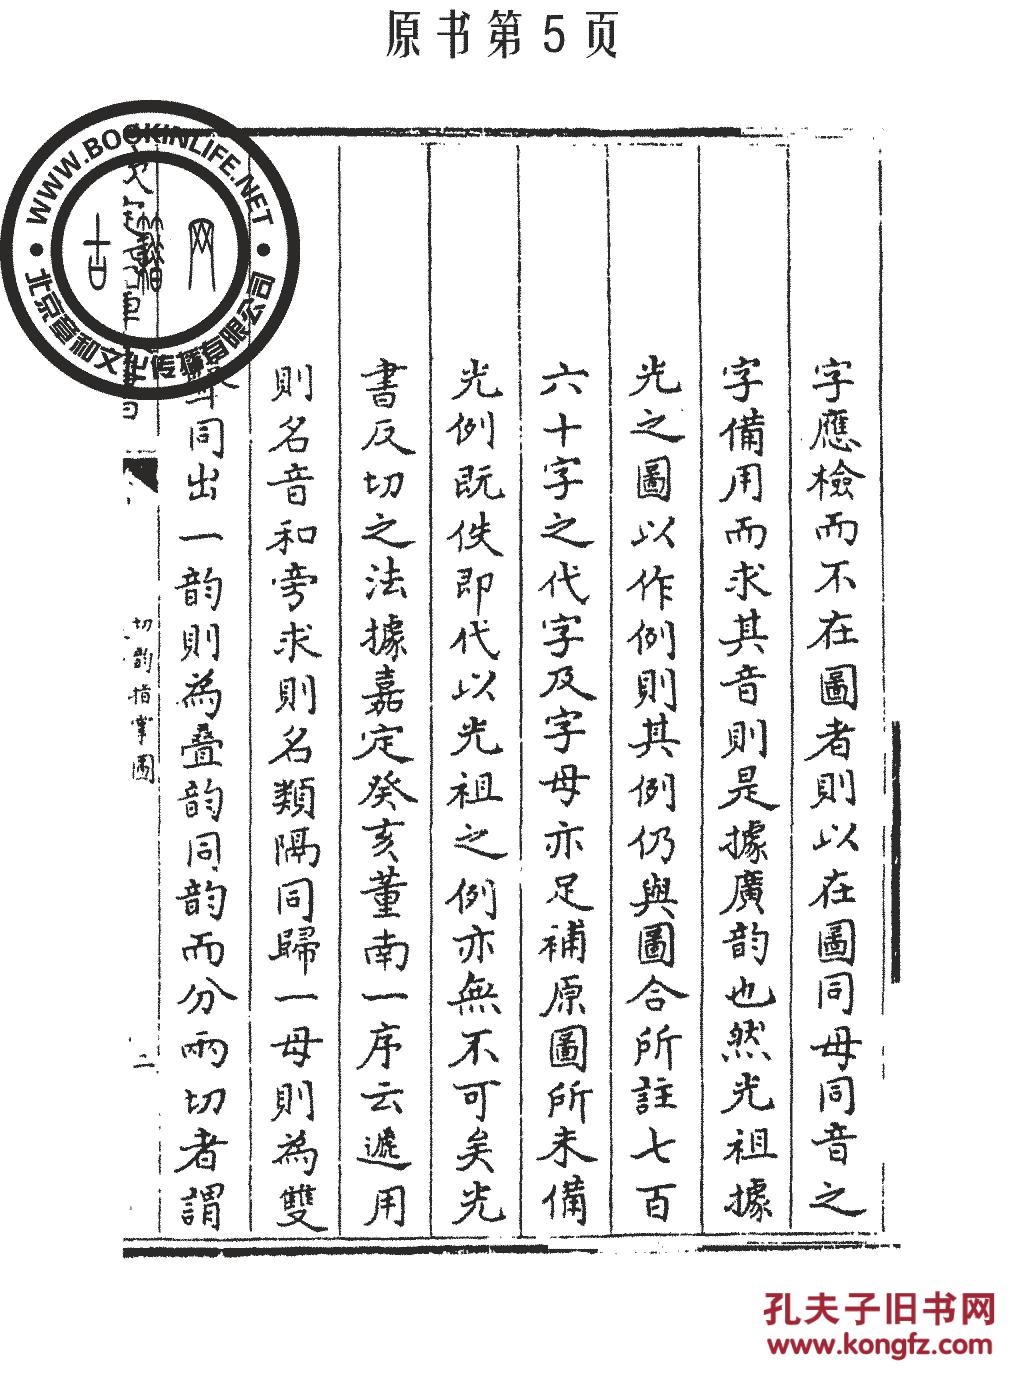 原书第5页
字應檢而不在圖者則以在圖同母同音之
字備用而求其音則是據廣韵也然光祖據
光之圖以作例則其例仍與圖合所註七百
六十字之代字及字母亦足補原圖所未備
光例既佚即代以光祖之例亦無不可矣光
書反切之法據嘉定癸亥董南一序云遞用
則名音和旁求則名類隔同歸一母則為雙
聲同出一韵則為叠韵同韵而分兩切者謂
切韵指掌圖
二
WWW.BOOKINLIFE.NET
北京章和文化传播有限公司
古籍网
孔夫子旧书网
www.kongfz.com